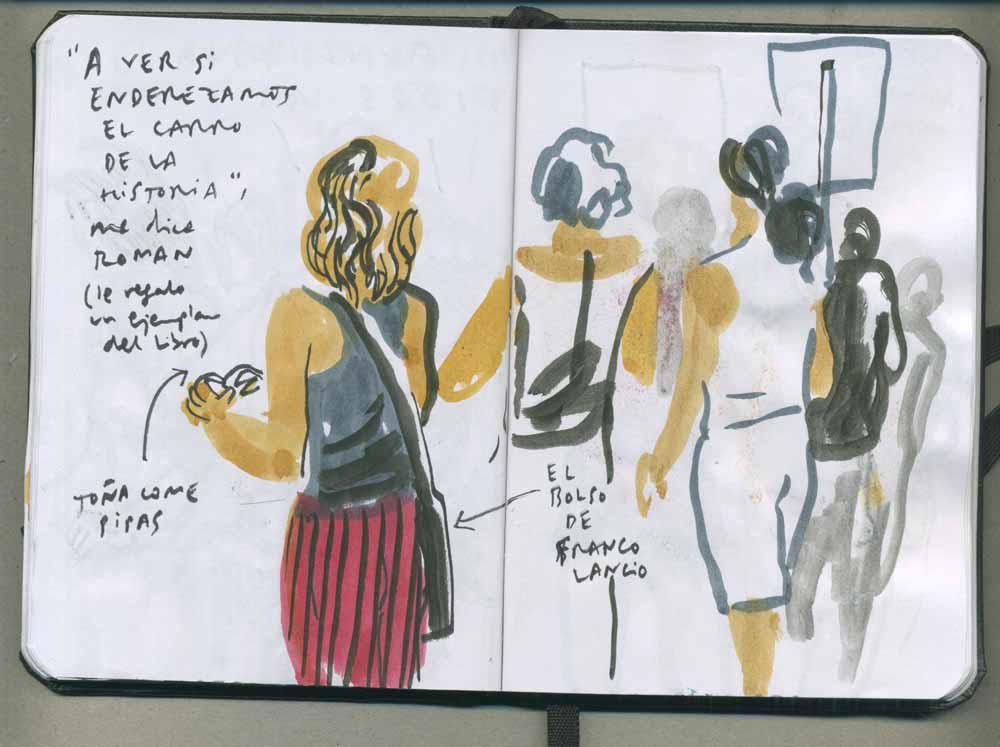 "A VER Si
ENDEREZAMOS
EL CARRO
DE LA
HISTORIA",
me dice
ROMAN
(le regalo
un ejemplar
del libro)
TOÑA COME
PIPAS
EL
BOLSO
DE
FRANCO
LANCiO